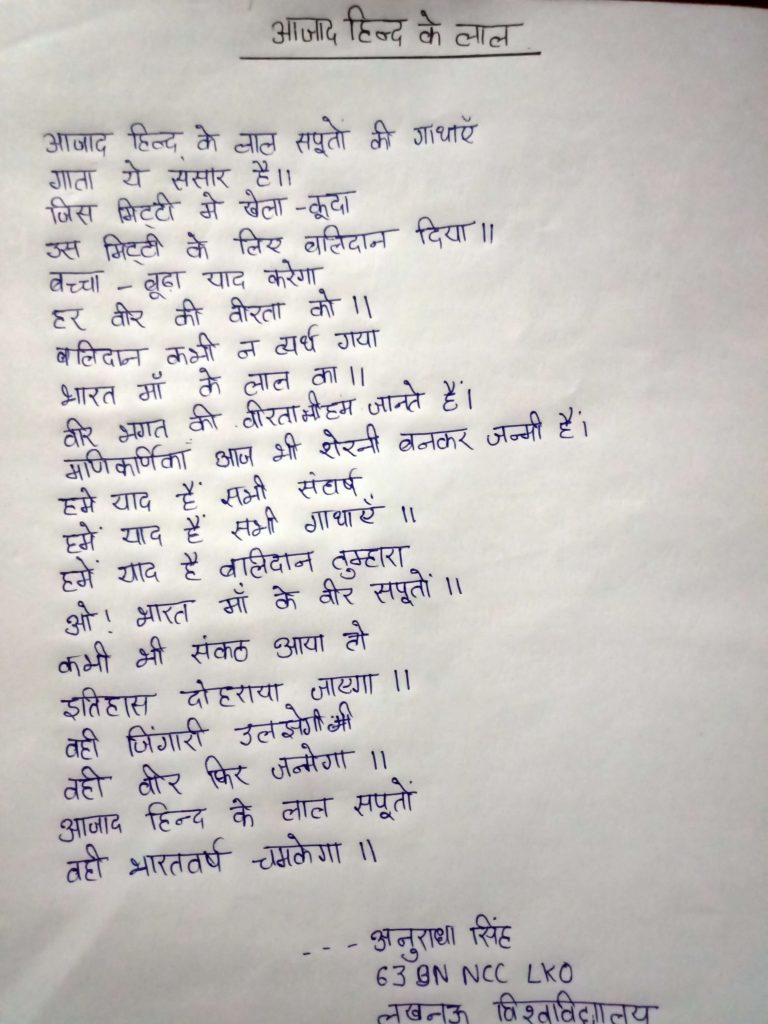 आजाद हिन्द के लाल
आजाद हिन्द के लाल सपूतों की गाथाएँ
गाता ये संसार है।।
जिस मिट्टी मे खेला - कूदा
उस मिट्टी के लिए बलिदान दिया ।।
बच्चा - बूढ़ा याद करेगा
हर वीर की वीरता को ।।
बलिदान कभी न व्यर्थ गया
भारत माँ के लाल का ।।
वीर भगत की वीरता भी हम जानते हैं।
मणिकर्णिका आज भी शेरनी बनकर जन्मी हैं।
हमे याद हैं सभी संघर्ष
हमें याद हैं सभी गाथाएँ ।।
हमें याद है बलिदान तुम्हारा
ओ! भारत माँ के वीर सपूतों ।।
कभी भी संकठ आया तो
इतिहास दोहराया जाएगा ।।
वही जिंगारी उलझेगी भी
वही वीर फिर जन्मेगा ।।
आजाद हिन्द के लाल सपूतों
वही भारतवर्ष चमकेगा ।।
--- अनुराधा सिंह
63 BN NCC LKO
लखनऊ विश्वविद्यालय